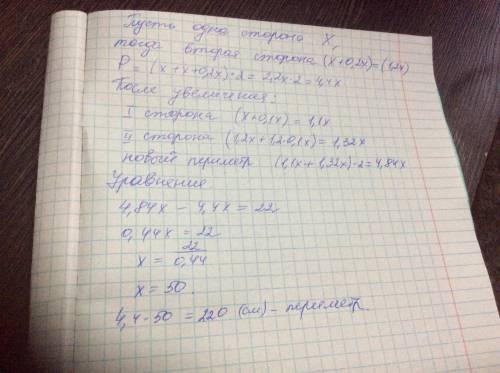 Пусть одна сторона X,
тогда вторая сторона (x+0,2x)=(1,2x)
P = (x+x+0,2x)·2=2,2x·2=4,4x
После увеличения:
I сторона (x+0,1x)=1,1x
II сторона (1,2x+1,2·0,1x)=1,32x
новый периметр (1,1x+1,32x)·2=4,84x
Уравнение
4,84x - 4,4x = 22
0,44x = 22
x = 22/0,44
x = 50.
4,4·50 = 220 (см) - периметр.